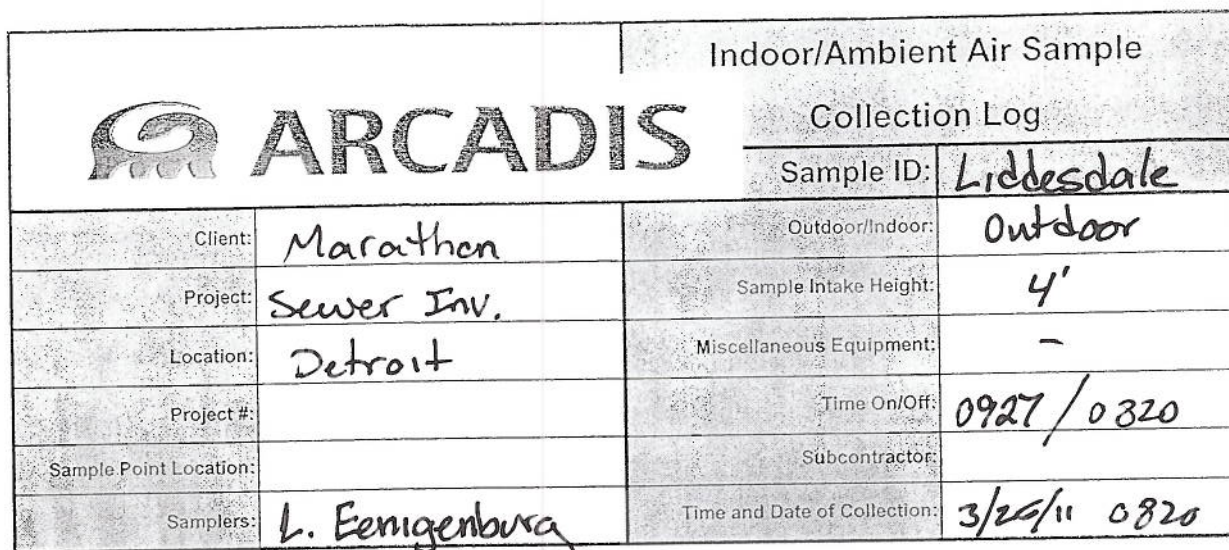 Indoor/Ambient Air Sample
Collection Log
ARCADIS
Sample ID: Liddesdale
Client: Marathon
Outdoor/Indoor: Outdoor
Project: Sewer Inv.
Sample Intake Height: 4'
Location: Detroit
Miscellaneous Equipment: -
Project #:
Time On/Off: 0927 / 0820
Sample Point Location:
Subcontractor:
Samplers: L. Eenigenburg
Time and Date of Collection: 3/26/11 0820